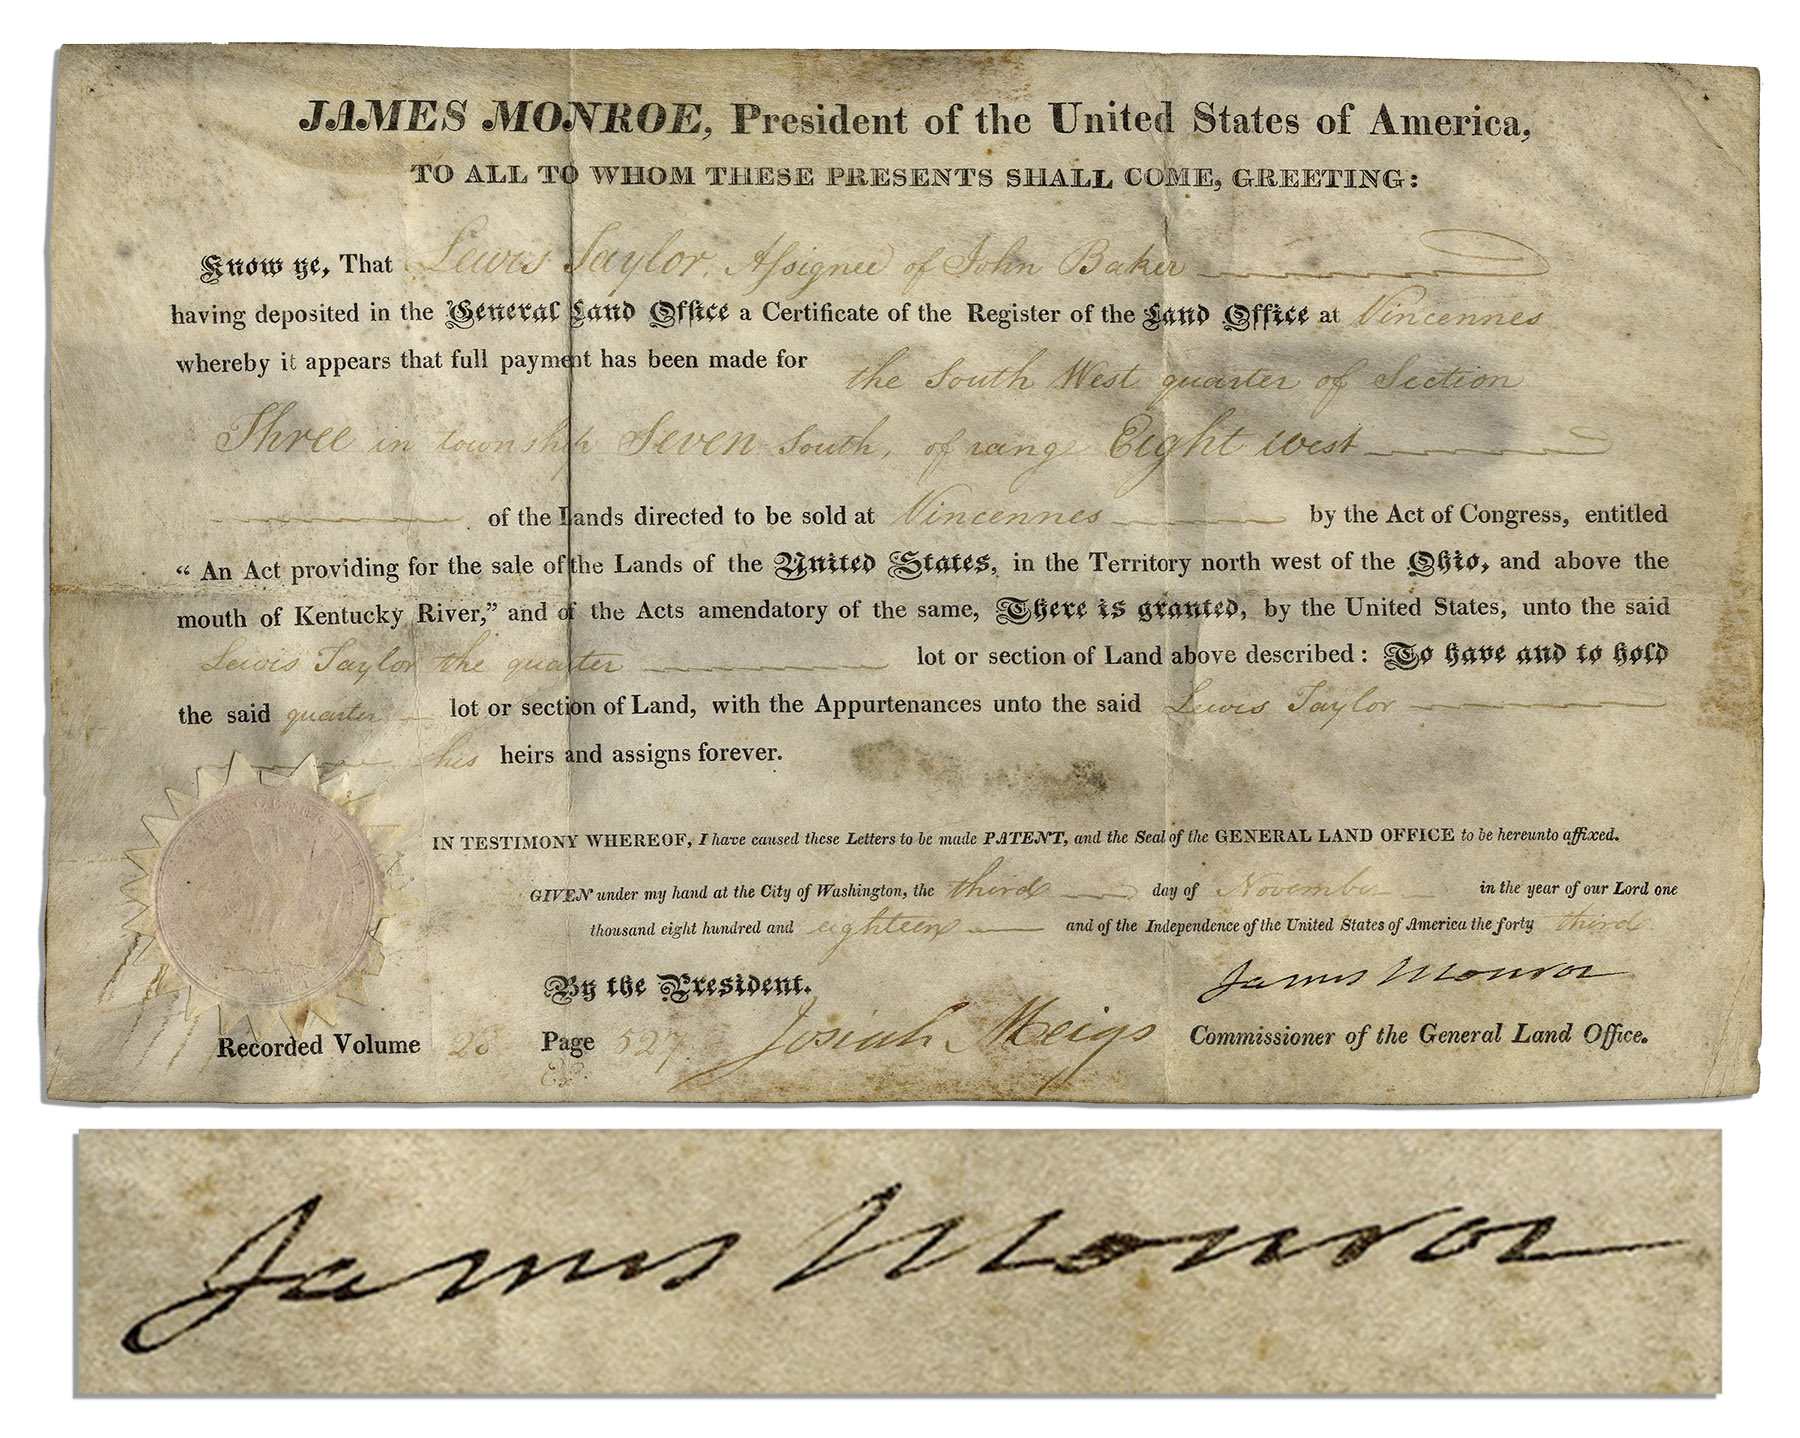 JAMES MONROE, President of the United States of America,
TO ALL TO WHOM THESE PRESENTS SHALL COME, GREETING:
Know ye, That Lewis Taylor, Assignee of John Baker
having deposited in the General Land Office a Certificate of the Register of the Land Office at Vincennes
whereby it appears that full payment has been made for the South West quarter of Section
Three in township Seven South, of range Eight west
of the Lands directed to be sold at Vincennes by the Act of Congress, entitled
“ An Act providing for the sale of the Lands of the United States, in the Territory north west of the Ohio, and above the
mouth of Kentucky River,” and of the Acts amendatory of the same, There is granted, by the United States, unto the said
Lewis Taylor the quarter lot or section of Land above described: To have and to hold
the said quarter lot or section of Land, with the Appurtenances unto the said Lewis Taylor
his heirs and assigns forever.
IN TESTIMONY WHEREOF, I have caused these Letters to be made PATENT, and the Seal of the GENERAL LAND OFFICE to be hereunto affixed.
GIVEN under my hand at the City of Washington, the third day of November in the year of our Lord one
thousand eight hundred and eighteen and of the Independence of the United States of America the forty third
James Monroe
By the President.
Josiah Meigs Commissioner of the General Land Office.
Recorded Volume Page 527
James Monroe